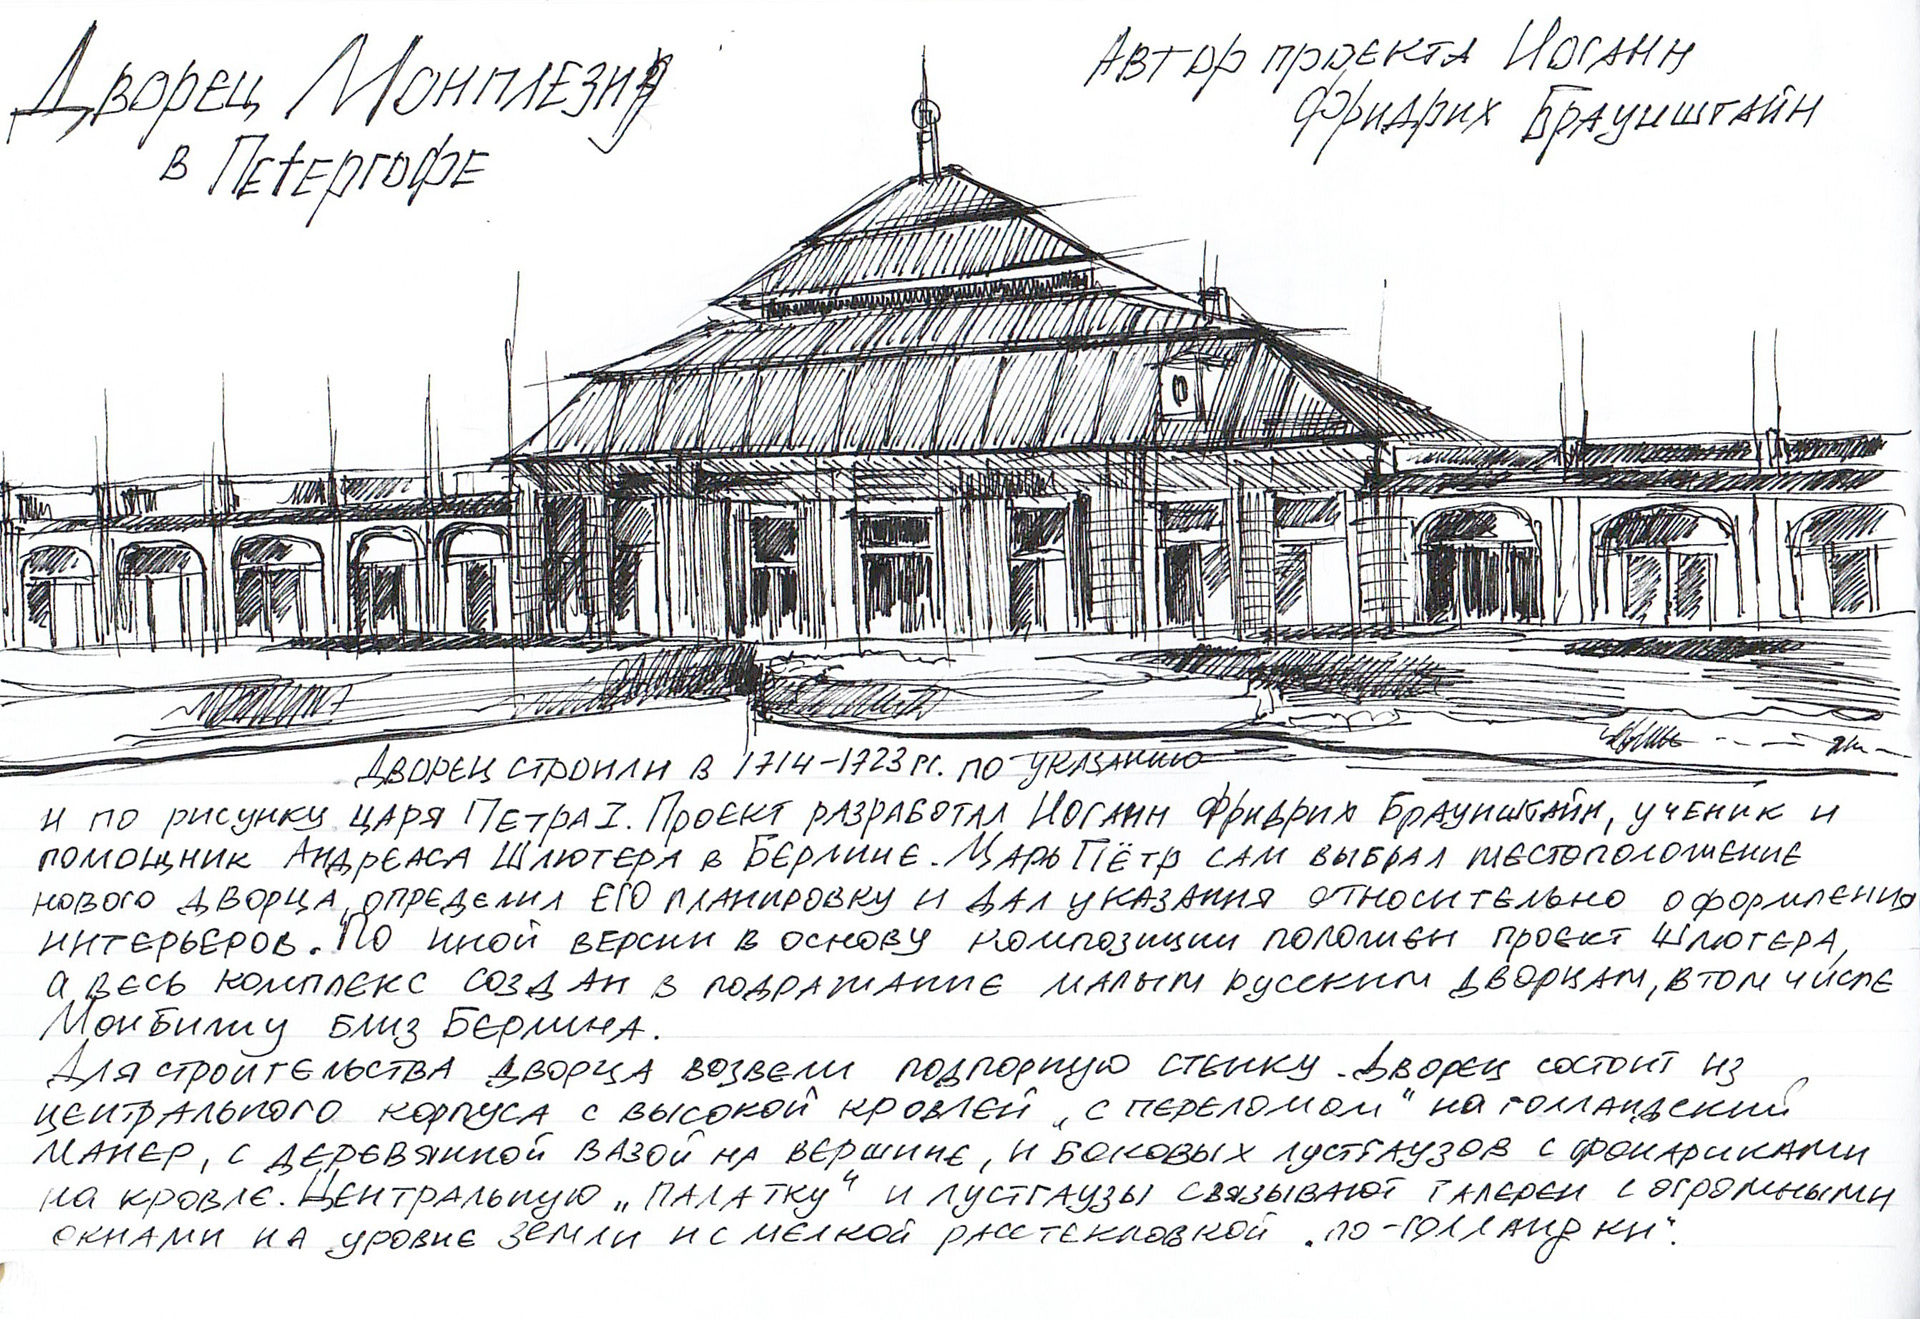 Дворец Монплезир
в Петергофе
Автор проекта Иоганн
Фридрих Браунштайн
Дворец строили в 1714-1723 гг. по указанию
и по рисунку царя Петра I. Проект разработал Иоганн Фридрих Браунштайн, ученик и
помощник Андреаса Шлютера в Берлине. Царь Пётр сам выбрал местоположение
нового дворца, определил его планировку и дал указания относительно оформления
интерьеров. По иной версии в основу композиции положен проект Шлютера,
а весь комплекс создан в подражание малым русским дворцам, в том числе
Монбижу близ Берлина.
Для строительства дворца возвели подпорную стенку. Дворец состоит из
центрального корпуса с высокой кровлей „с переломом“ на голландский
манер, с деревянной вазой на вершине, и боковых лустгаузов с фонариками
на кровле. Центральную „палатку“ и лустгаузы связывают галереи с огромными
окнами на уровне земли и с мелкой расстекловкой „по-голландски“.